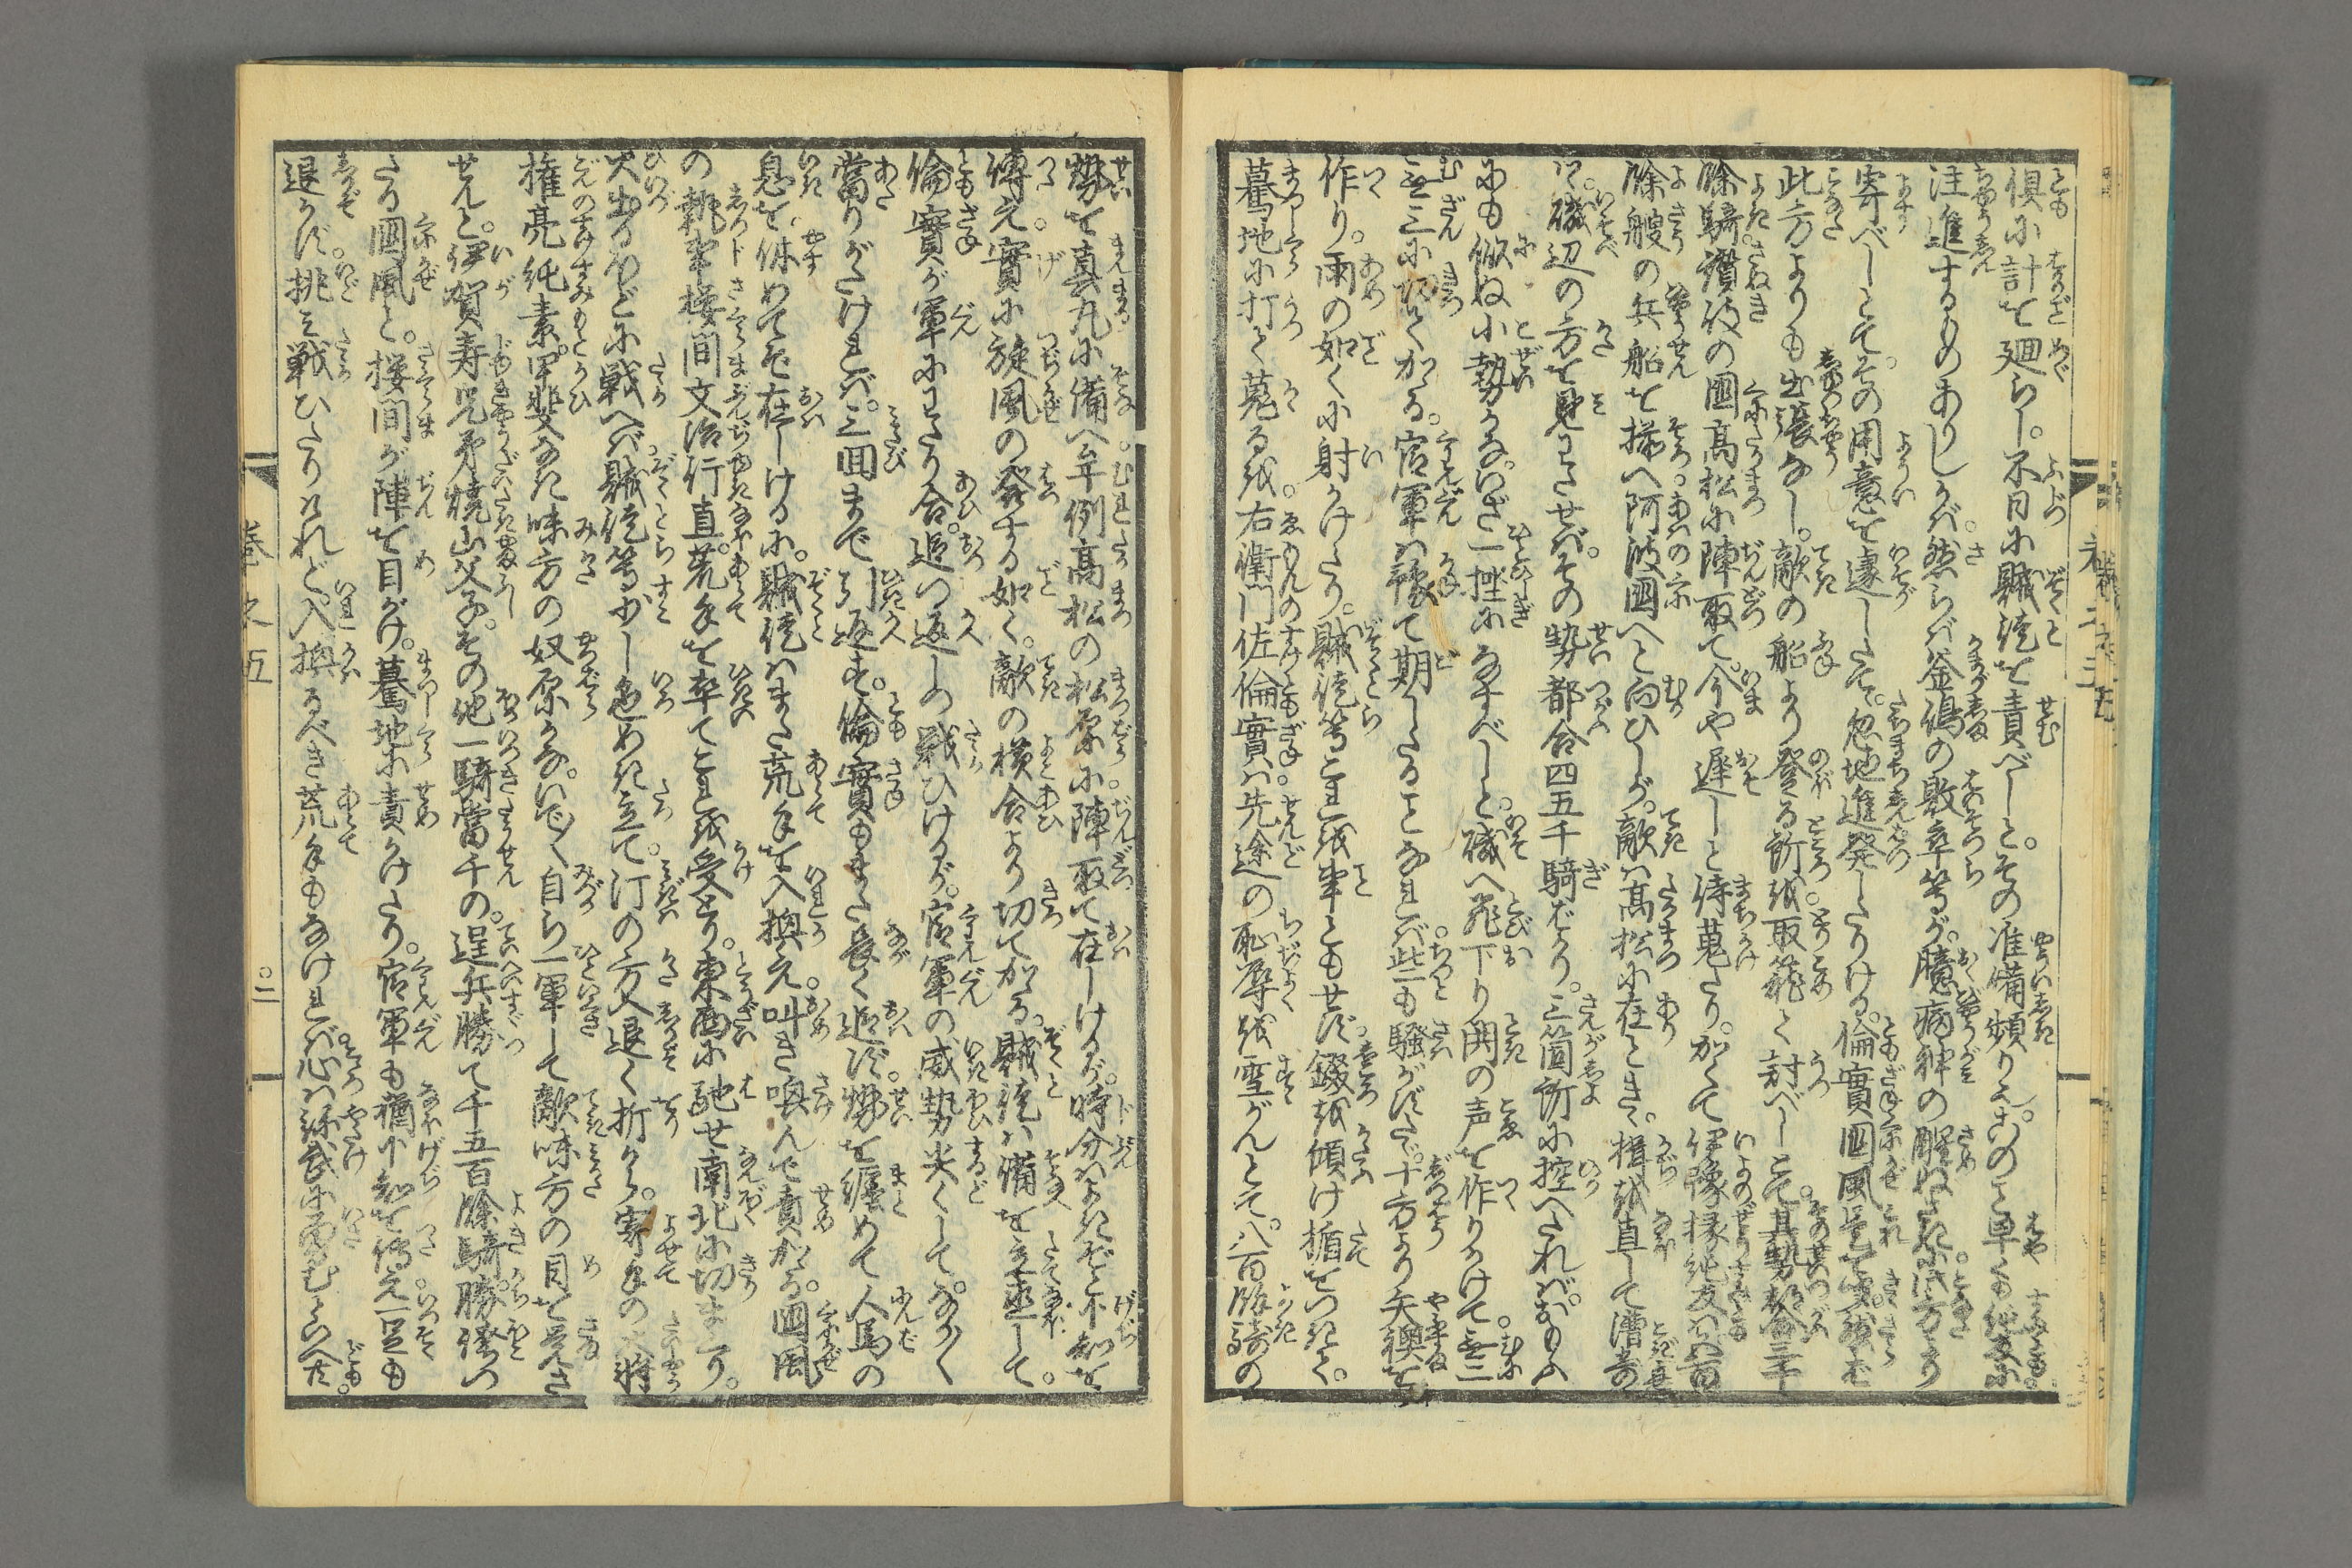 倶に計を廻らし。不日に賊徒を責べしと。その准備頻りなり。このこと早くも純友に
注進するものありしかば。然らば釜嶋の敗卒等が。臆病神の醒ぬさきに此方より
寄べしとて。その用意を遽しくて。忽地進発したりける。倫實国風是を聞。然らば
此方よりも出張なし。敵の船より登る所を取籠て討べしとて。其勢都合三千
餘騎讃岐の国高松に陣取て。今や遅しと待蒐たり。かくて伊豫掾純友は八百
餘艘の兵船を揃へ阿波国へと向ひしが。敵は高松に在とき。楫を直して漕寄
つゝ磯辺の方を見わたせば。その勢都合四五千騎ばかり。三箇所に控へたれば。おもふ
にも似ぬ小勢かな。いざ一挫になすべしと。磯へ飛下り鬨の声を作りかけて。無二
無三に切てかゝる。官軍は豫て期したることなれば。些も騒がずたゞ。十方より矢襖を
作り。雨の如くに射かけたり。賊徒等これを事ともせず。錣を傾け楯をつきて。
驀地に打て蒐るを。右衛門佐倫實は先途の恥辱を雪がんとて。八百餘騎の
勢を真丸に備へ。牟例高松の松原に陣取て在しけるが。時分はよきぞと下知を
傳え。實に旋風の發する如く。敵の横合より切てかゝる。賊徒は備を立直して。
倫實が軍にわたり合。追つ返しつ戦ひけるが。官軍の威勢尖くして。なかなか
當りがたければ。三回まで引返す。倫實もまた長く追ず。勢を纏めて人馬の
息を休めてぞ在しけるに。賊徒はまた荒手を入換え。叫き喚んで責かゝる。国風
の執事桜間文治行直。荒手を率てこれを受とり。東西に馳せ南北に切まくり。
火出るほどに戦へば。賊徒等少し色めき立て。汀の方へ退く折から。寄手の大将
権亮純素。甲斐なき味方の奴原かな。いでいで自ら一軍して敵味方の目を覚さ
せんと。伊賀寿児矛焼山父子。その他一騎當千の。逞兵勝て千五百餘騎。勝儕つ
たる国風と。桜間が陣を目がけ。驀地に責かけたり。官軍も猶下知を傳え一足も
退かず。挑み戦ひたりけれど。入換るべき荒手もなければ。心は弥武に勇むといへ共。
巻之五
〇二